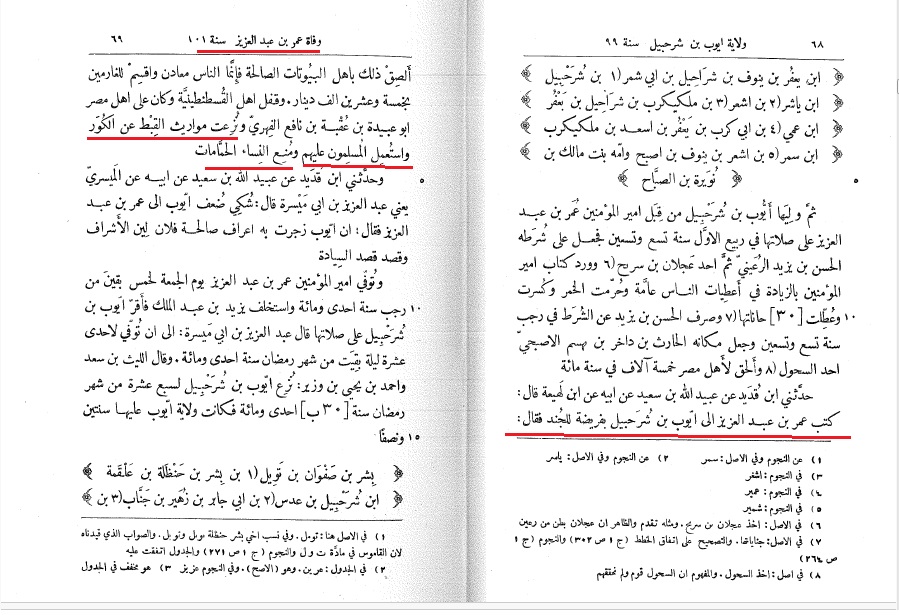 ٦٨ ولاية ايوب بن شرحبيل سنة ٩٩
ابن يعفُر بن ينوف بن شراحيل بن ابي شمر(١ بن شُرَحْبِيل
ابن ياشر(٢ بن اشعر(٣ بن ملكيكرب بن شراحيل بن يَعْفُر
ابن عمي(٤ بن ابي كرب بن يَعْفُر بن اسعد بن ملكيكرب
ابن سمر(٥ بن اشعر بن ينوف بن اصبح وامّه بنت مالك بن
٥ نُوَيرة بن الصبَّاح
ثمَّ وليَها أيُّوب بن شُرَحْبيل من قِبَل امير المؤمنين عُمَر بن عبد
العزيز على صلاتها في ربيع الاوَّل سنة تسع وتسعين فجعل على شُرَطه
الحسن بن يزيد الرُعَينيّ ثمَّ احد عَجلان بن سريح(٦ وورد كتاب امير
المؤمنين بالزيادة في أعطيات الناس عامَّة وحُرّمت الخمر وكُسرت
١٠ وعُطّلت [٣٠] حاناتها(٧ وصرف الحسن بن يزيد عن الشُرَط في رجب
سنة تسع وتسعين وجعل مكانه الحارث بن داخر بن يهسم الاصبحيّ
احد السحول(٨ وأُلحق لأهل مصر خمسة آلاف في سنة مائة
حدَّثني ابن قُدَيد عن عبيد الله بن سعيد عن ابيه عن ابن لَهيعة قال:
كتب عمر بن عبد العزيز الى ايّوب بن شُرَحبيل بفريضة للجُند فقال:
١) عن النجوم وفي الاصل: سمر ٢) عن النجوم وفي الاصل: ياسر
٣) في النجوم: اشغر
٤) في النجوم: عمير
٥) في النجوم: شمير
٦) في الاصل: اخذ عجلان بن سريح. ومثله تقدم والظاهر ان عجلان بطن من رعين
٧) في الاصل: جناياتها. والتصحيح على اتفاق الخطط (ج ١ ص ٣٠٢) والنجوم (ج ١
ص ٢٦٤)
٨) في اصل: اخذ السحول. والمفهوم ان السحول قوم ولم نحققهم
وفاة عمر بن عبد العزيز سنة ١٠١ ٦٩
ألصِقْ ذلك باهل البيُوتات الصالحة فإنَّما الناس معادن واقسِمْ للغارمين
بخمسة وعشرين الف دينار. وقفل اهل القُسطنطينيَّة وكان على اهل مصر
ابو عبيدة بن عُقبة بن نافع الفِهريّ ونُزعت مواريث القِبْط عن الكُوَر
واستُعمل المسلمون عليهم ومُنع النِساء الحمَّامات
٥ وحدَّثني ابن قُدَيد عن عبيد الله بن سعيد عن ابيه عن الميسريّ
يعني عبد العزيز بن ابي مَيْسرة قال: شُكي ضُعف ايّوب الى عمر بن عبد
العزيز فقال: ان ايّوب زجرت به اعراف صالحة فلان لِين الأشراف
وقصد قصد السيادة
وتُوفّي امير المؤمنين عمر بن عبد العزيز يوم الجمعة لخمس بقينَ من
١٠ رجب سنة احدى ومائة واستخلف يزيد بن عبد الملك فأقرّ ايّوب بن
شُرَحْبيل على صلاتها قال عبد العزيز بن ابي مَيسرة: الى ان تُوفّي لاحدى
عشرة ليلة بقِيَت من شهر رمضان سنة احدى ومائة. وقال الليث بن سعد
واحمد بن يحيى بن وزير: نُزع ايّوب بن شُرَحْبيل لسبع عشرة من شهر
رمضان سنة [٣٠ ب] احدى ومائة فكانت ولاية ايّوب عليها سنتين
١٥ ونصفًا
بِشر بن صَفْوان بن تَويل(١ بن بِشر بن حَنظَلة بن عَلقَمة
ابن شُرَحْبِيل بن عدس(٢ بن ابي جابر بن زُهَير بن جَنَّاب(٣ بن
١) في الاصل هنا: تومل. وفي نسب اخي بشر حنظلة والصواب الذي قيدناه
لان القاموس في مادَّة ت و ل والنجوم (ج ١ ص ٢٧١) والجدول اتفقت عليه
٢) في الجدول: عرين. وهو (الاصح). وفي النجوم عزيز ٣) هو مخفف في الجدول